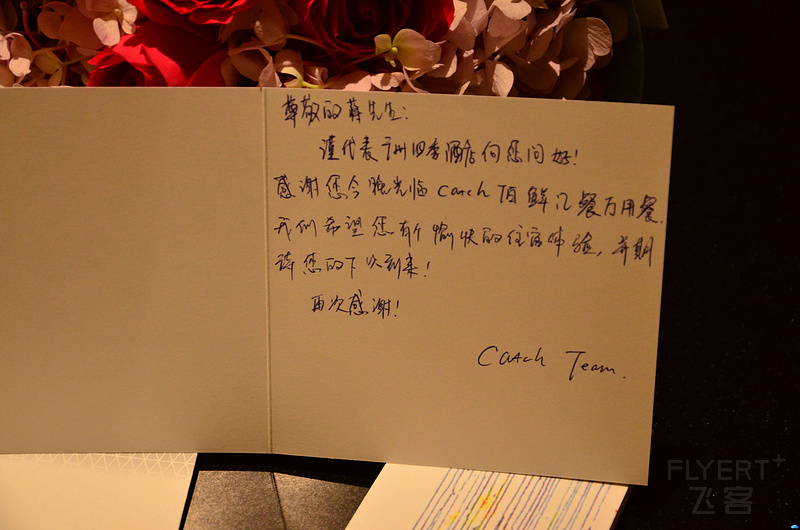 尊敬的蒋先生:
谨代表广州四季酒店向您问好!
感谢您今晚光临Catch顶鲜汇餐厅用餐.
我们希望您有个愉快的住宿体验,并期
待您的下次到来!
再次感谢!
Catch Team.
FLYERT+
飞客